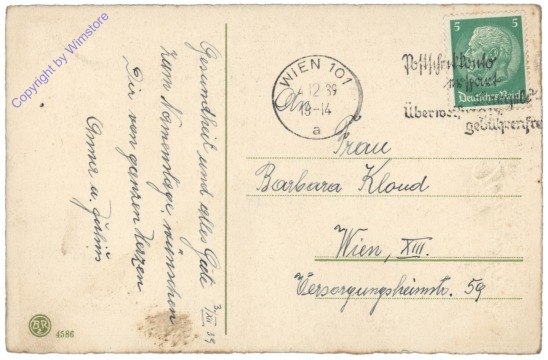 Copyright by Wimstore
Gesundheit und alles Gute
zum Namenstage, wünschen
Dir von ganzen Herzen
Anna u.
3/XII. 39
WIEN 101
4.12.39
13-14
a
5 5
Deutsches Reich
Postscheckkonto
erspart
Überweisungen
gebührenfrei
An
Frau
Barbara Kloud
Wien, XIII.
Versorgungsheimstr. 59
4586